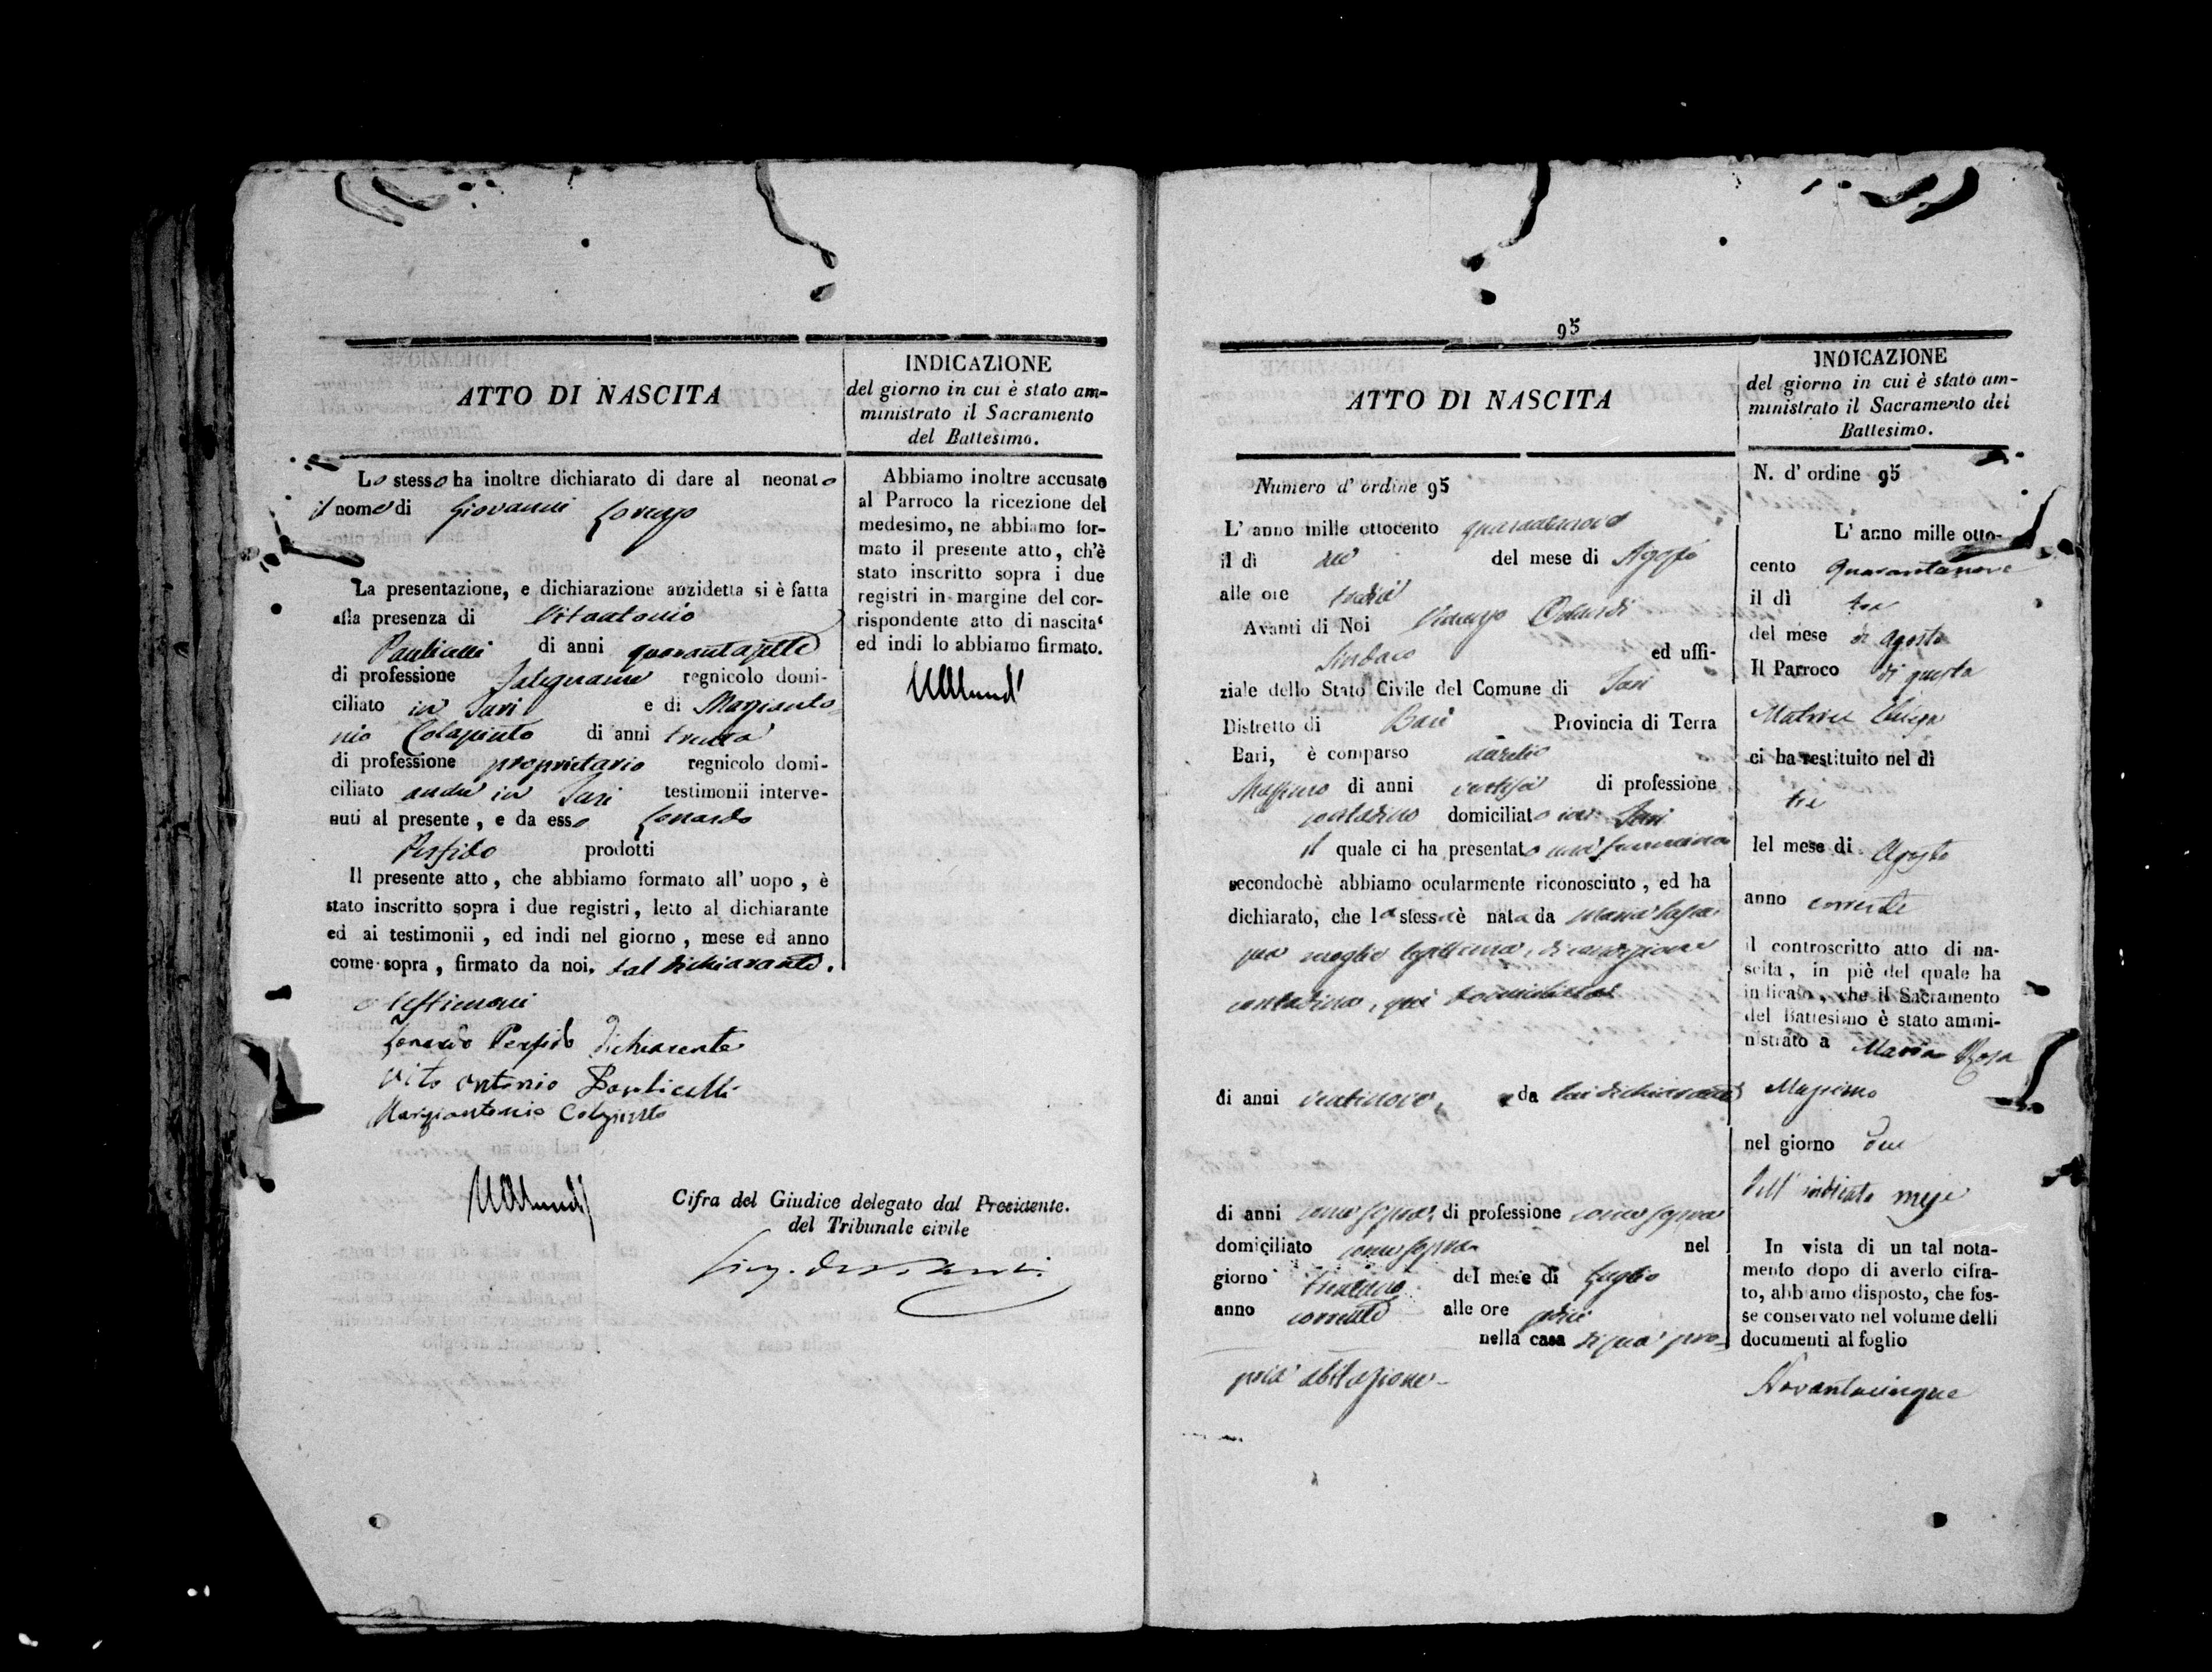 ATTO DI NASCITA
Lo stesso ha inoltre dichiarato di dare al neonato
il nome di Giovanni Lorenzo
La presentazione, e dichiarazione anzidetta si è fatta
alla presenza di Vitantonio
Paulicelli di anni quarantasette
di professione Falegname regnicolo domi-
ciliato in e di Margianto
nio Colapinto di anni trenta
di professione proprietario regnicolo domi-
ciliato anche in testimonii interve-
nuti al presente, e da esso Leonardo
Perfido prodotti
Il presente atto, che abbiamo formato all' uopo, è
stato inscritto sopra i due registri, letto al dichiarante
ed ai testimonii, ed indi nel giorno, mese ed anno
come sopra, firmato da noi, dal dichiarante,
e testimoni
Leonardo Perfido dichiarante
Vito Antonio Paulicelli
Margiantonio Colapinto
Cifra del Giudice delegato dal Presidente.
del Tribunale civile
INDICAZIONE
del giorno in cui è stato am-
ministrato il Sacramento
del Battesimo.
Abbiamo inoltre accusato
al Parroco la ricezione del
medesimo, ne abbiamo for-
mato il presente atto, ch'è
stato inscritto sopra i due
registri in margine del cor-
rispondente atto di nascita
ed indi lo abbiamo firmato.
95
ATTO DI NASCITA
Numero d' ordine 95
L' anno mille ottocento quarantanove
il dì due del mese di Agosto
alle ore tredici
Avanti di Noi Vincenzo
Sindaco ed uffi-
ziale dello Stato Civile del Comune di
Distretto di Bari Provincia di Terra
Bari, è comparso
Massimo di anni di professione
contadino domiciliato in
il quale ci ha presentato una femmina
secondochè abbiamo ocularmente riconosciuto, ed ha
dichiarato, che la stessa è nata da Maria
sua moglie legittima, di condizione
contadina, qui domiciliata
di anni ventinove, e da lui dichiarante
di anni come sopra, di professione come sopra
domiciliato come sopra nel
giorno trentuno del mese di Luglio
anno corrente alle ore
nella casa di sua pro-
pria abitazione
INDICAZIONE
del giorno in cui è stato am-
ministrato il Sacramento del
Battesimo.
N. d' ordine 95
L' anno mille otto-
cento quarantanove
il dì tre
del mese di Agosto
Il Parroco di questa
Matrice Chiesa
ci ha restituito nel dì
tre
del mese di Agosto
anno corrente
il controscritto atto di na-
scita, in piè del quale ha
indicato, che il Sacramento
del Battesimo è stato ammi-
nistrato a Maria Rosa
Massimo
nel giorno due
dell' indicato mese
In vista di un tal nota-
mento dopo di averlo cifra-
to, abbiamo disposto, che fos-
se conservato nel volume delli
documenti al foglio
Novantacinque